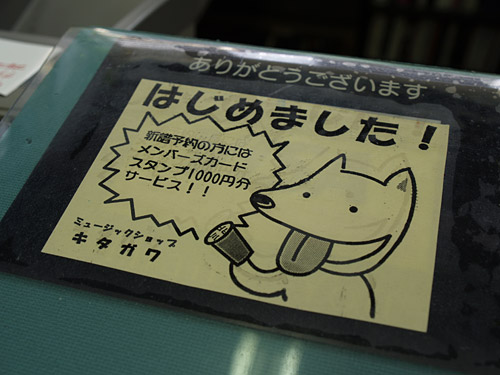 ありがとうございます
はじめました！
新譜予約の方には
メンバーズカード
スタンプ1000円分
サービス！！
ミュージックショップ
キタガワ